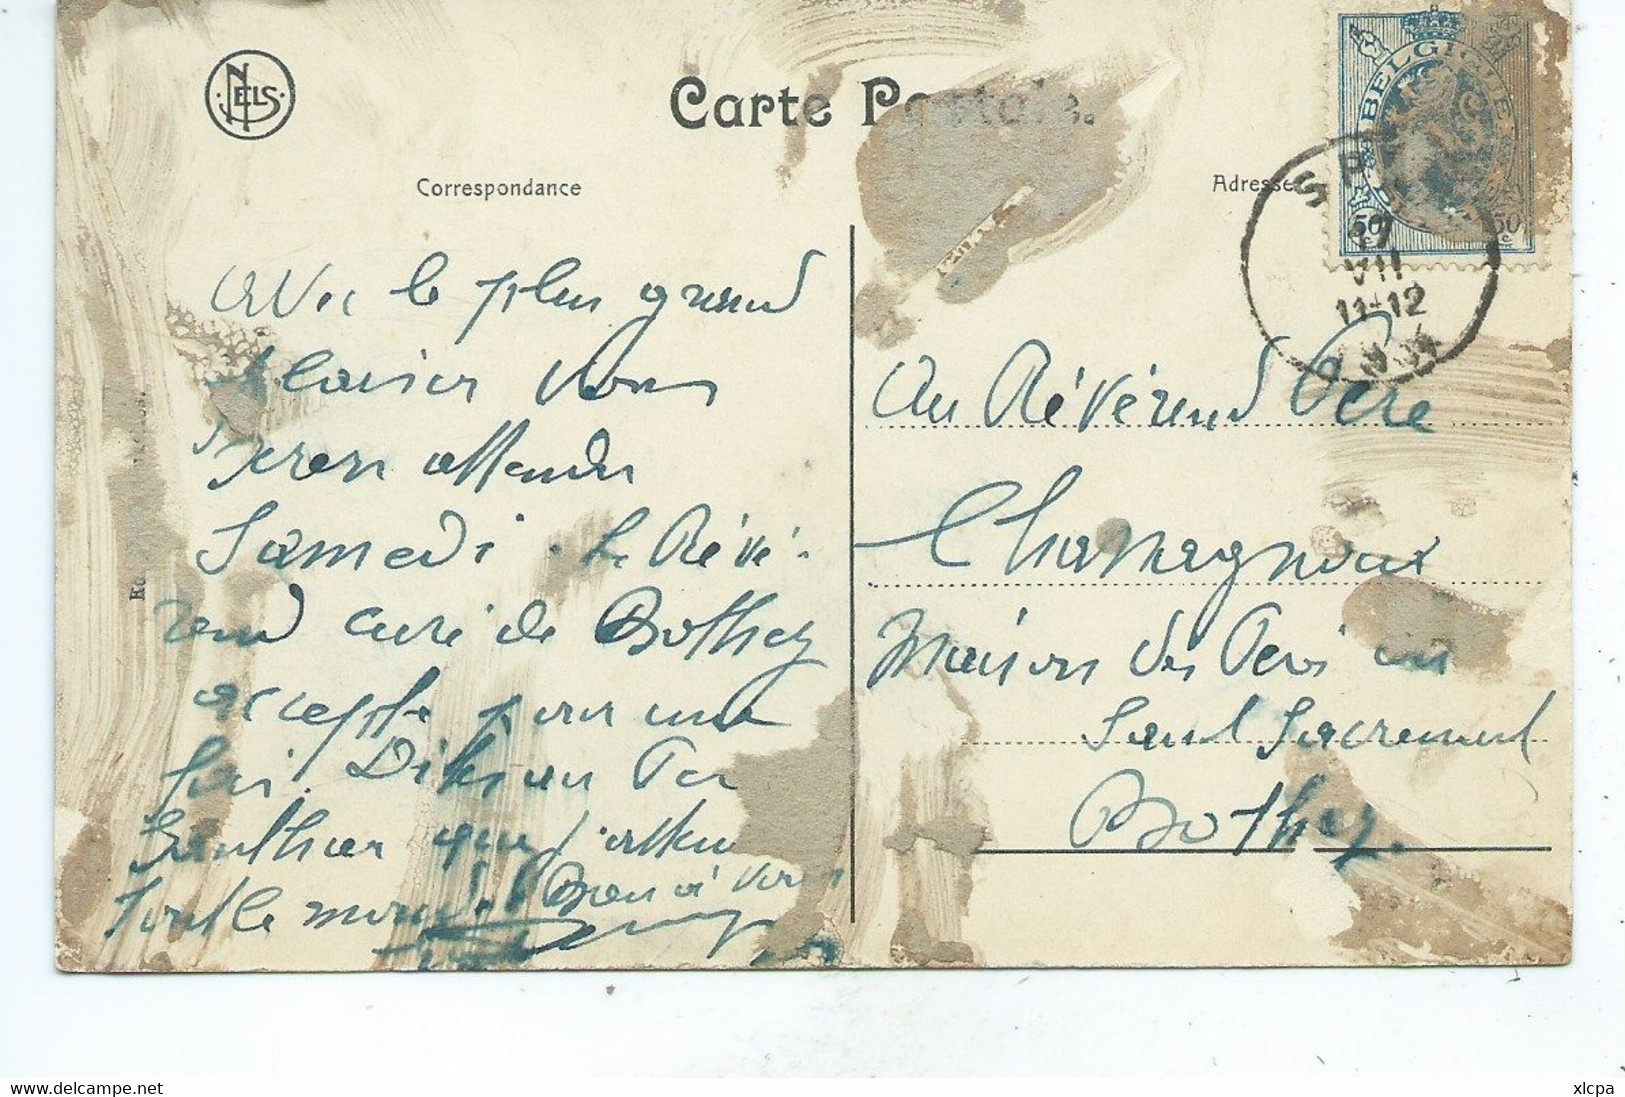 NELS
Carte Postale.
BELGIQUE
50c 50c
Correspondance
Adresse
SPA
17
VII
11-12
avec le plus grand
plaisir vous
serez attendu
Samedi. Le Révé-
rend curé de Bothey
accepte pour une
fois. Dites au Père
Gauthier que j'attends
tout le monde. Bien à vous
Au Révérend Père
Chamagnoux
Maison des Pères du
Saint Sacrement
Bothey.
delcampe.net
xlcpa